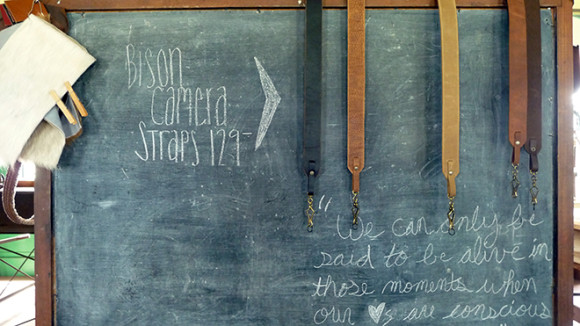 Bison
camera
straps 129-
"We can only be
said to be alive in
those moments when
our ♥s are conscious